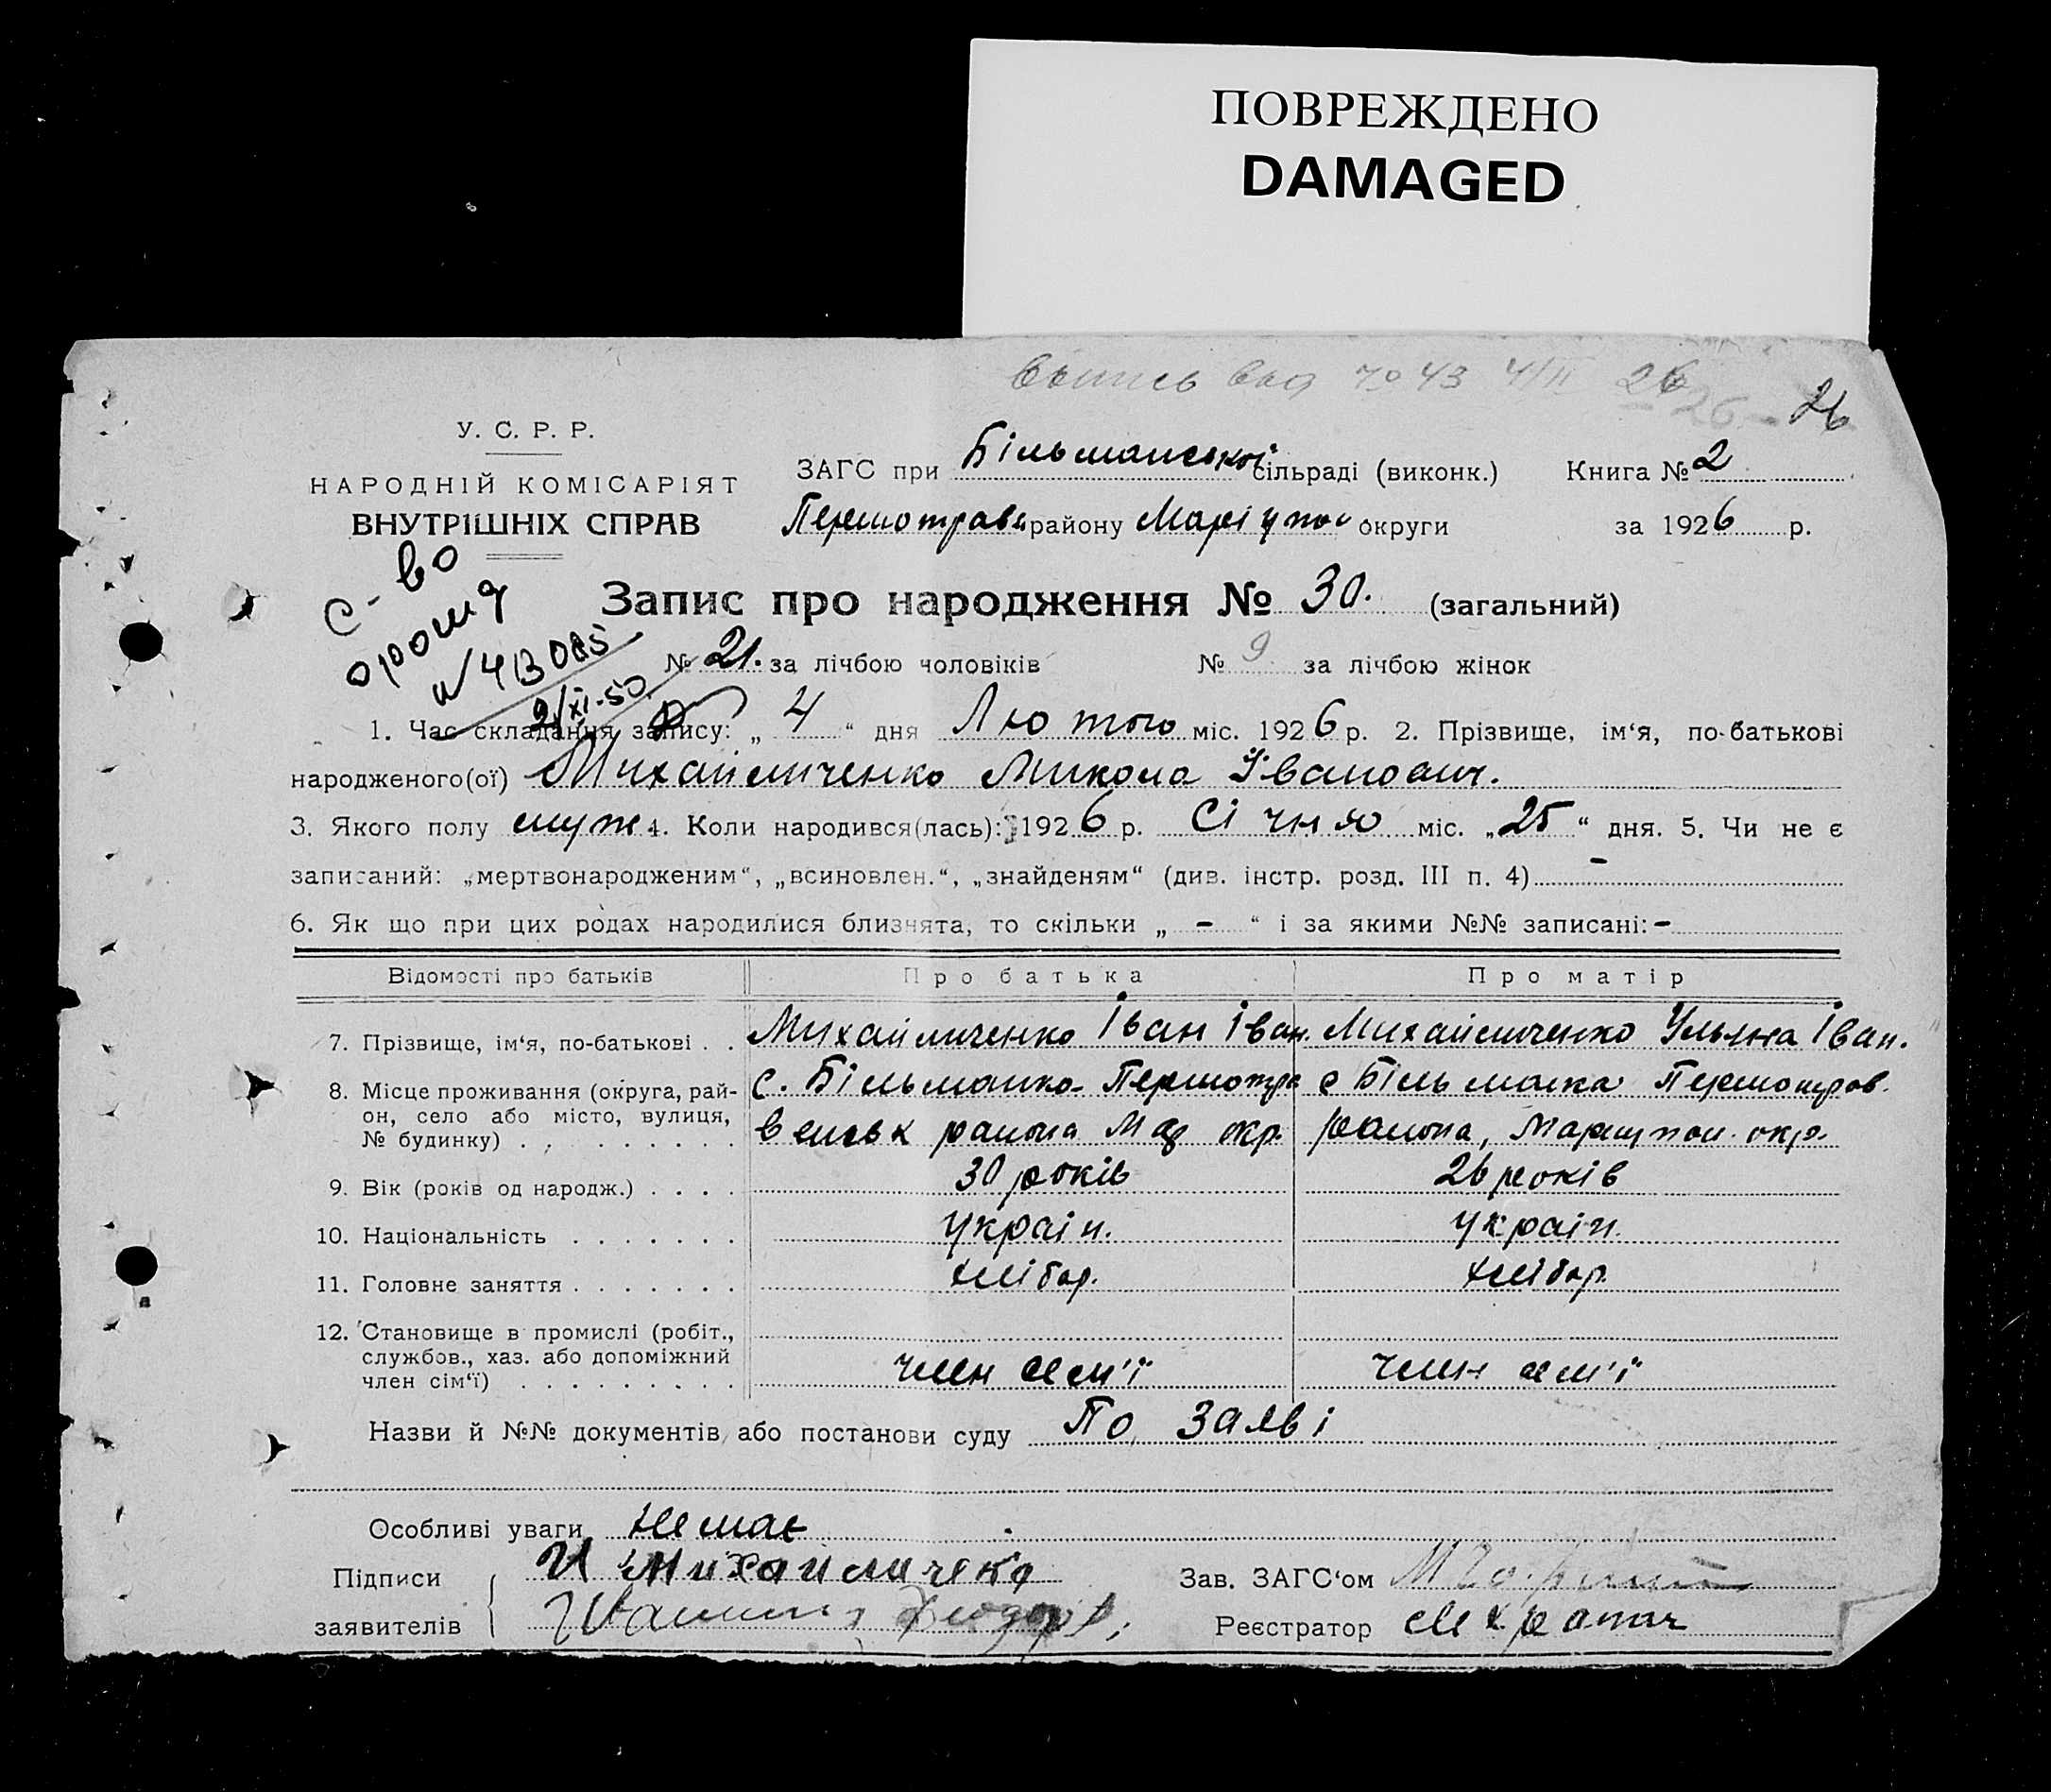 ПОВРЕЖДЕНО
DAMAGED
26
У. С. Р. Р.
НАРОДНІЙ КОМІСАРІЯТ
ВНУТРІШНІХ СПРАВ
ЗАГС при Більманської сільраді (виконк.) Книга № 2
району Маріупол округи за 1926 р.
С-во
№ 43
Запис про народження № 30. (загальний)
№ 21. за лічбою чоловіків № 9 за лічбою жінок
1. Час складання запису: „ 4 “ дня Лютого міс. 1926 р. 2. Прізвище, ім‘я, по-батькові
народженого(ої) Михайличенко Микола Іванович.
3. Якого полу муж 4. Коли народився(лась): 1926 р. Січня міс. „25“ дня. 5. Чи не є
записаний: „мертвонародженим“, „всиновлен.“, „знайденям“ (див. інстр. розд. III п. 4) -
6. Як що при цих родах народилися близнята, то скільки „ - “ і за якими №№ записані: -
Відомості про батьків Про батька Про матір
7. Прізвище, ім‘я, по-батькові . . Михайличенко Іван Іван. Михайличенко Уляна Іван.
8. Місце проживання (округа, рай-
он, село або місто, вулиця,
№ будинку) . . . . . . . . .
с. Більманка
с Більманка
окр.
района, Мариупол. окр.
9. Вік (років од народж.) . . . . 30 років 26 років
10. Національність . . . . . . . україн. україн.
11. Головне заняття . . . . . . . хлібор. хлібор.
12. Становище в промислі (робіт.,
службов., хаз. або допоміжний
член сім‘ї) . . . . . . . . . член сем'ї член сем'ї
Назви й №№ документів або постанови суду По заяві
Особливі уваги немає
Підписи И Михайличеко Зав. ЗАГС‘ом
заявителів Реєстратор